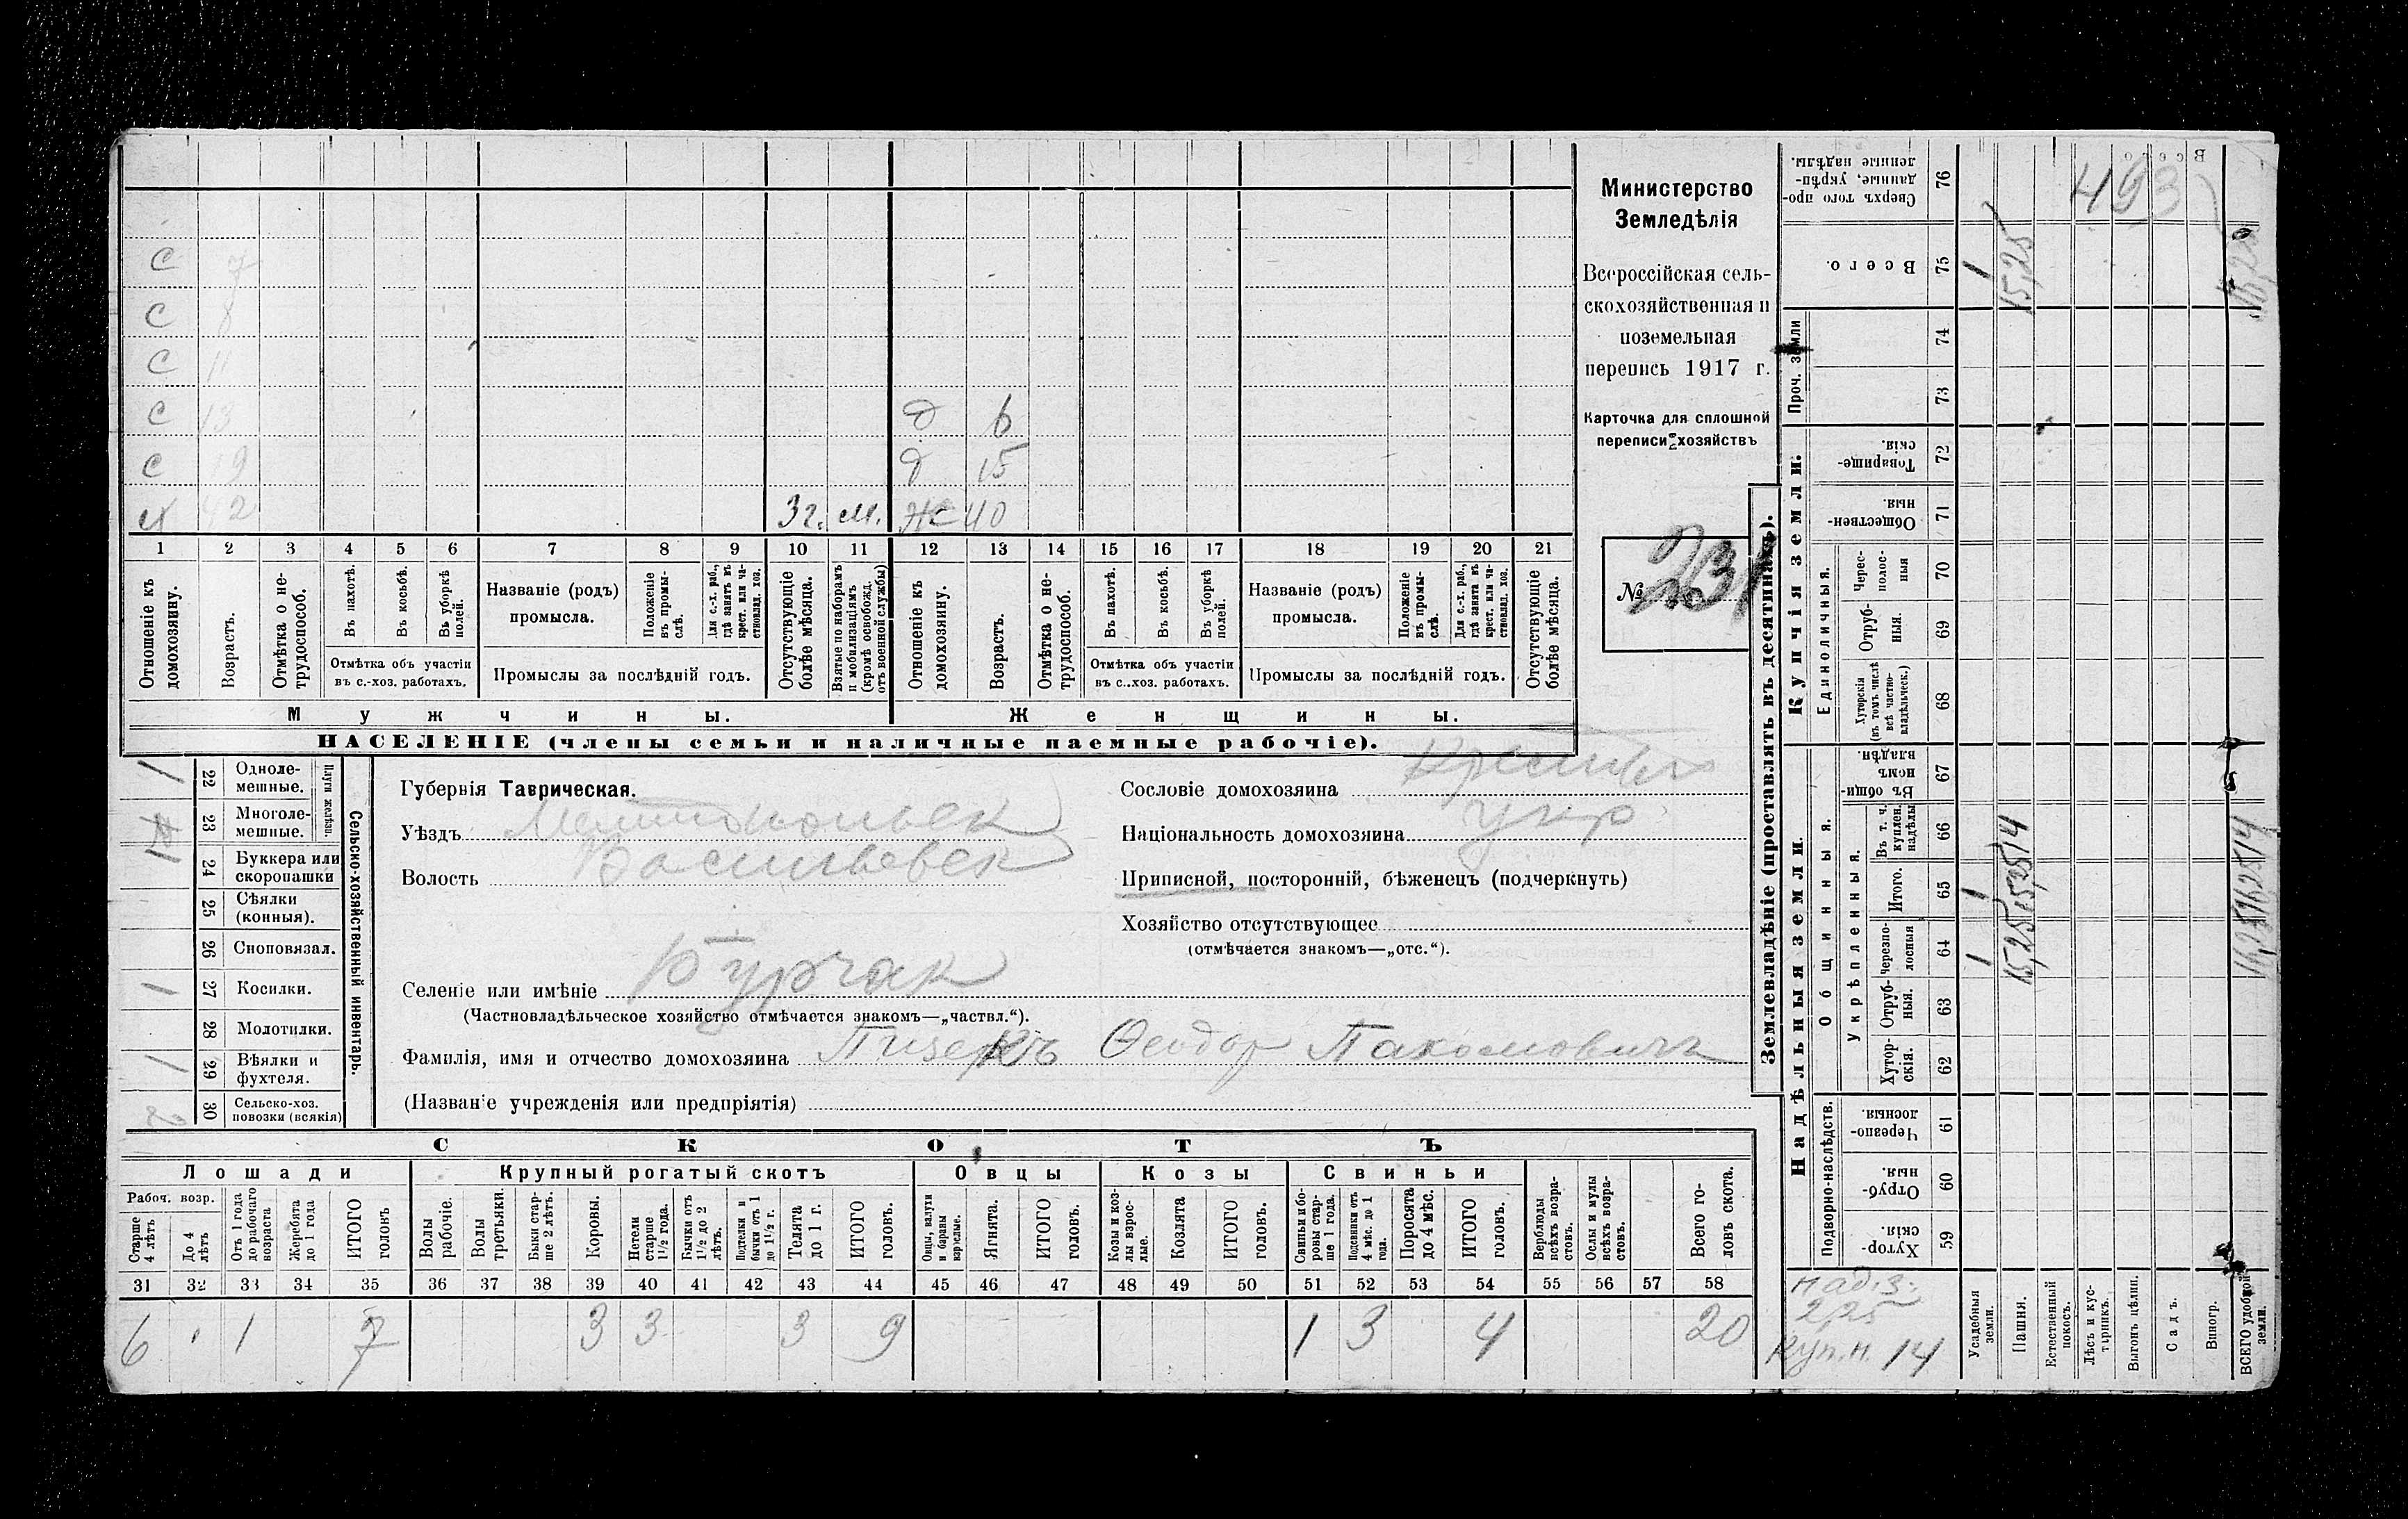 С 7
С 8
С 11
С 13 д 6
С 19 д 15
х 42 3 г. м. Ж 40
1 2 3 4 5 6 7 8 9 10 11 12 13 14 15 16 17 18 19 20 21
Отношеніе къ домохозяину.
Возрастъ.
Отмѣтка о не-трудоспособ.
Въ пахотѣ.
Въ косьбѣ.
Въ уборкѣ полей.
Отмѣтка объ участіи
въ с.-хоз. работахъ.
Названіе (родъ)
промысла.
Положеніе въ промы-слѣ.
Для с.-х. раб., гдѣ занятъ въ крест. или ча-стновлад. хоз.
Промыслы за послѣдній годъ.
Отсутствующіе болѣе мѣсяца.
Взятые по наборамъ и мобилизаціямъ (кромѣ освобожд. отъ военной службы)
Отношеніе къ домохозяину.
Возрастъ.
Отмѣтка о не-трудоспособ.
Въ пахотѣ.
Въ косьбѣ.
Въ уборкѣ полей.
Отмѣтка объ участіи
въ с..хоз. работахъ.
Названіе (родъ)
промысла.
Положеніе въ промы-слѣ.
Для с.-х. раб., гдѣ занята въ крест. или ча-стновлад. хоз.
Промыслы за послѣдній годъ.
Отсутствующіе болѣе мѣсяца.
Мужчины.
Женщины.
НАСЕЛЕНІЕ (члены семьи и наличные наемные рабочіе).
Министерство
Земледѣлія
Всероссійская сель-
скохозяйственная и
поземельная
перепись 1917 г.
Карточка для сплошной
переписи хозяйствъ
№ 231
Сельско-хозяйственный инвентарь.
Плуги желѣзн.
1 22 Одноле-мешные.
23 Многоле-мешные.
1 24 Буккера или скоропашки
25 Сѣялки (конныя).
26 Сноповязал.
1 27 Косилки.
28 Молотилки.
1 29 Вѣялки и фухтеля.
2 30 Сельско-хоз. повозки (всякія)
Губернія Таврическая.
Уѣздъ Мелитопольск
Волость Васильевск
Селеніе или имѣніе Бурчак
(Частновладѣльческое хозяйство отмѣчается знакомъ—„частвл.“).
Фамилія, имя и отчество домохозяина Феодор Пахомовичъ
(Названіе учрежденія или предпріятія)
Сословіе домохозяина
Національность домохозяина укр
Приписной, посторонній, бѣженецъ (подчеркнуть)
Хозяйство отсутствующее
(отмѣчается знакомъ—„отс.“).
СКОТЪ
Лошади
Крупный рогатый скотъ
Овцы
Козы
Свиньи
Рабоч. возр.
Старше 4 лѣтъ
До 4 лѣтъ
Отъ 1 года до рабочаго возраста
Жеребята до 1 года
ИТОГО головъ
Волы рабочіе.
Волы третьяки.
Быки стар-ше 2 лѣтъ.
Коровы.
Нетели старше 1½ года.
Бычки отъ 1½ до 2 лѣтъ.
Подтелки и бычки отъ 1 до 1½ г.
Телята до 1 г.
ИТОГО головъ.
Овцы, валухи и бараны взрослые.
Ягнята.
ИТОГО головъ.
Козы и коз-лы взрос-лые.
Козлята
ИТОГО головъ.
Свиньи и бо-ровы стар-ше 1 года.
Подсвинки отъ 4 мѣс. до 1 года.
Поросята до 4 мѣс.
ИТОГО головъ.
Верблюды всѣхъ возра-стовъ.
Ослы и мулы всѣхъ возра-стовъ.
Всего го-ловъ скота.
31 32 33 34 35 36 37 38 39 40 41 42 43 44 45 46 47 48 49 50 51 52 53 54 55 56 57 58
6 1 7 3 3 3 9 1 3 4 20
Землевладѣніе (проставлять въ десятинахъ).
Надѣльныя земли.
Купчія земли.
Проч. земли
Подворно-наслѣдств.
Общинныя.
Укрѣпленныя.
Единоличныя.
Сверхъ того про-данные, укрѣп-ленные надѣлы. 76
Всего. 75 1 15,25
74
73
Товарище-скія. 72
Обществен-ныя. 71
Черес-полос-ныя 70
Отруб-ныя. 69
Хуторскія (въ томъ числѣ всѣ частно-владѣльческ.) 68
Въ общи-номъ владѣн. 67
Въ т. ч. куплен. надѣлы 66 14
Итого. 65 1
Черезпо-лосныя 64 1 15,25
Отруб-ныя. 63
Хутор-скія. 62
Черезпо-лосныя. 61
Отруб-ныя. 60
Хутор-скія. 59
493
Всего
над. 3.
2,25
куп. н. 14
Усадебныя земли.
Пашня.
Естественный покосъ.
Лѣсъ и кус-тарникъ.
Выгонъ цѣлин.
Садъ.
Виногр.
ВСЕГО удобной земли.